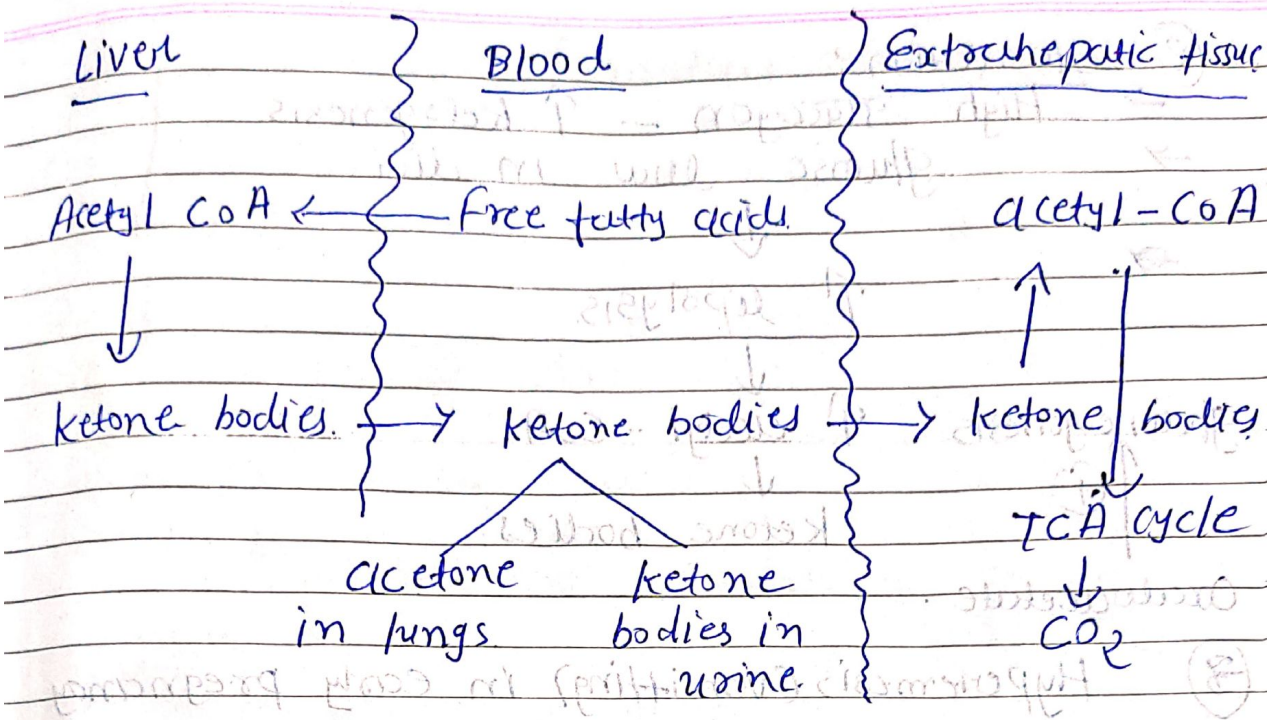 Liver Blood Extrahepatic tissue
Acetyl CoA ← Free fatty acids. acetyl-CoA
ketone bodies. → ketone bodies → ketone bodies
TCA cycle
acetone ketone
in lungs. bodies in CO2
urine.